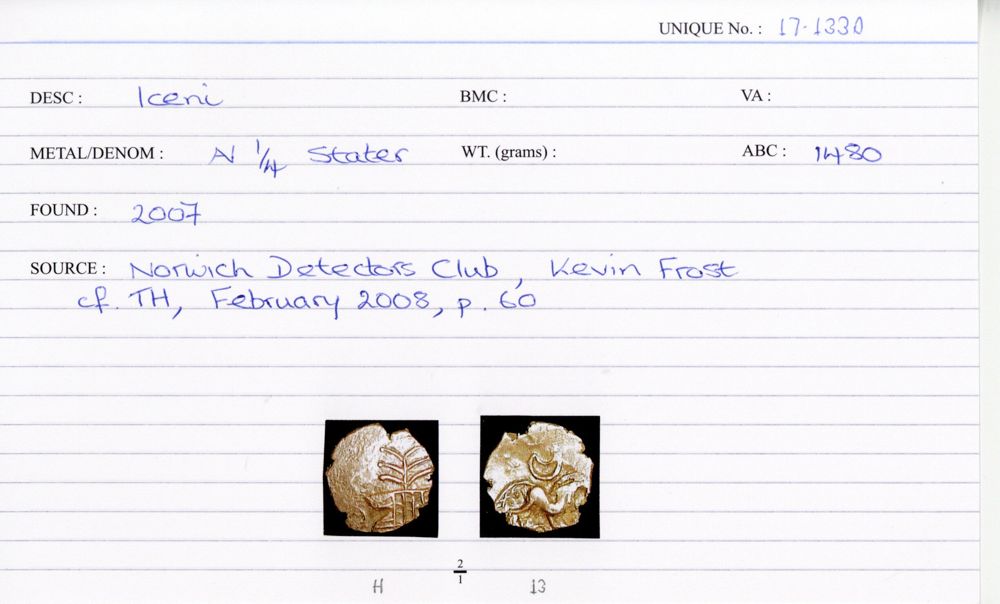 UNIQUE No. : 17-1330
DESC : Iceni BMC : VA :
METAL/DENOM : N 1/4 Stater WT. (grams) : ABC : 1480
FOUND : 2007
SOURCE : Norwich Detectors Club, Kevin Frost
cf. TH, February 2008, p. 60
2/1
H 13